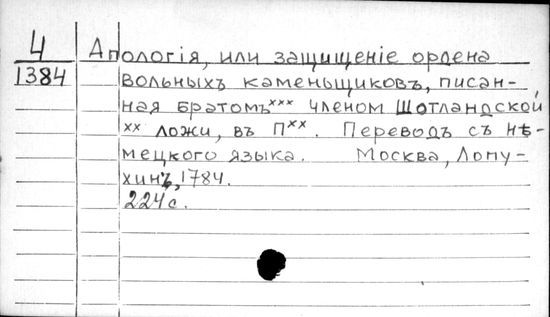 4
1384
Апологія, или защищеніе ордена
вольныхъ каменьщиковъ, писан-
ная братомъ ххх членом Шотландской
хх ложи, въ Пхх. Переводъ съ нѣ-
мецкого языка. Москва, Лопу-
хинъ, 1784.
224 с.